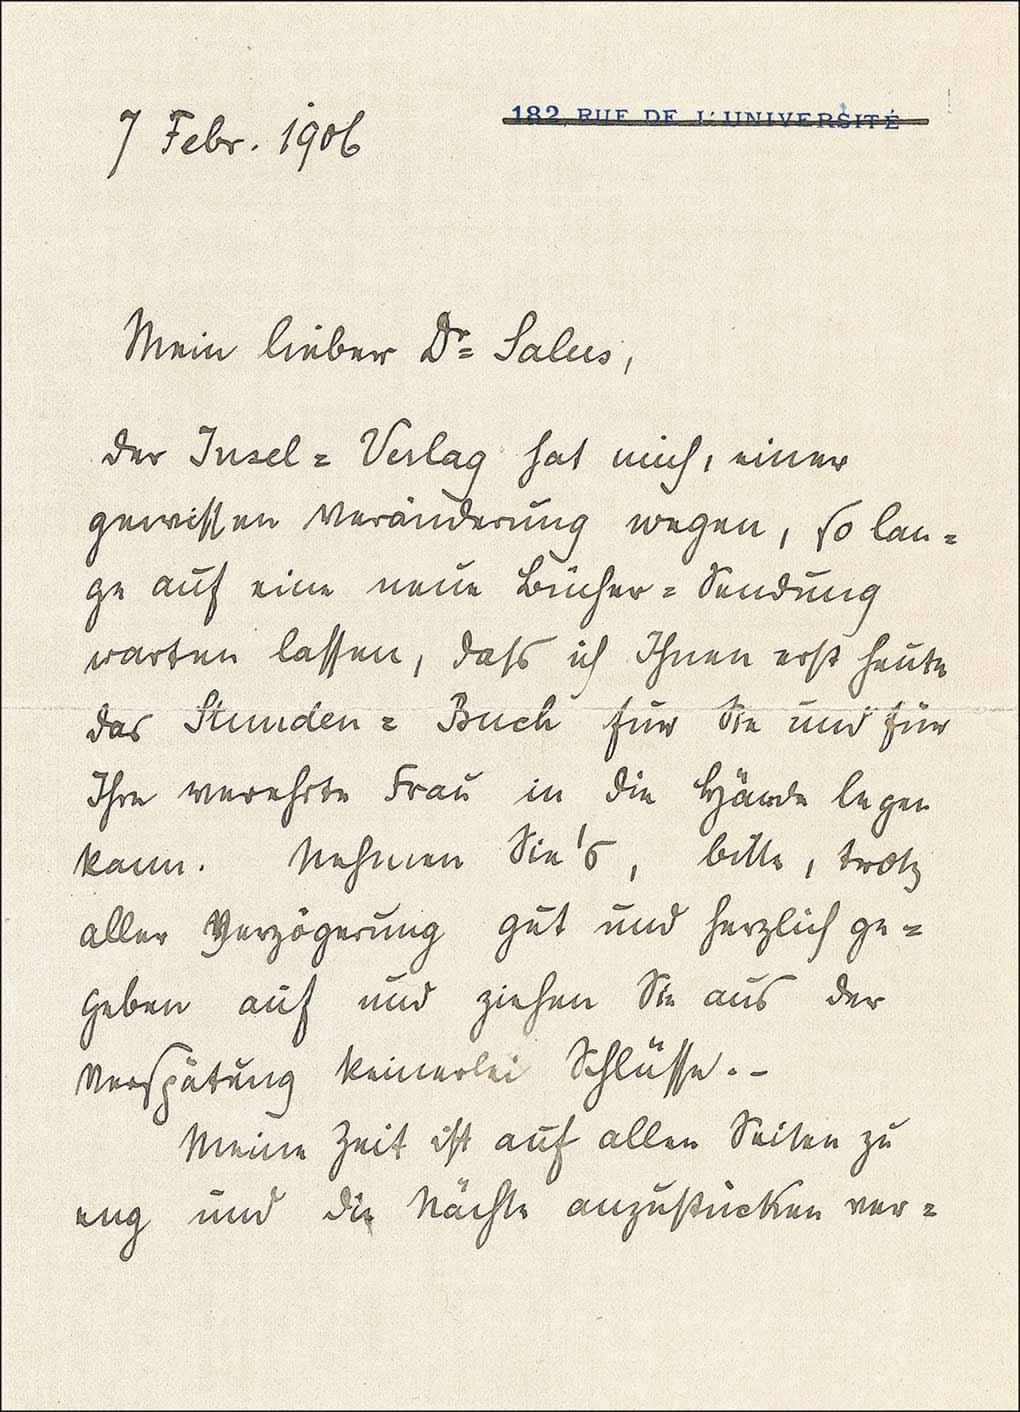 7 Febr. 1906
182, RUE DE L'UNIVERSITÉ
Mein lieber Dr= Salus,
der Insel= Verlag hat mich, einer
gewissen Veränderung wegen, so lan=
ge auf eine neue Bücher= Sendung
warten lassen, dass ich Ihnen erst heute
das Stunden= Buch für Sie und für
Ihre verehrte Frau in die Hände legen
kann. Nehmen Sie's, bitte, trotz
aller Verzögerung gut und herzlich ge=
geben auf und ziehen Sie aus der
Verspätung keinerlei Schlüsse.-
Meine Zeit ist auf allen Seiten zu
eng und die Nächte anzustücken ver=